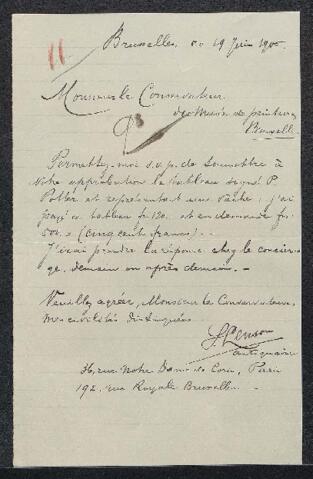 11
Bruxelles, le 19 Juin 1900.
Monsieur le Conservateur
des Musées de peinture
Bruxelles
Permettez-moi s.v.p. de soumettre à
votre approbation le tableau signé P.
Potter et représentant une vache; j'ai
payé ce tableau fr. 120. et en demande fr.
500. (cinq cents francs).
J'irai prendre la réponse chez le concier-
ge, demain ou après demain. —
Veuillez agréer, Monsieur le Conservateur,
mes civilités distinguées
antiquaire
36, rue Notre Dame de Paris
192, rue Royale Bruxelles. —